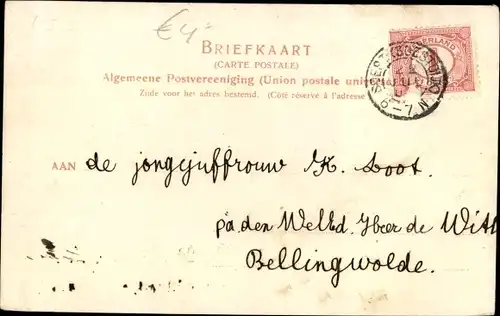 €4,-
BRIEFKAART
(CARTE POSTALE)
Algemeene Postvereeniging (Union postale univ
Zijde voor het adres bestemd. (Côté réservé à l'adresse
NEDERLAND
6-7.N
AAN de jongejuffrouw K. Loot.
p/a. den WelEd. Heer de Witt
Bellingwolde.